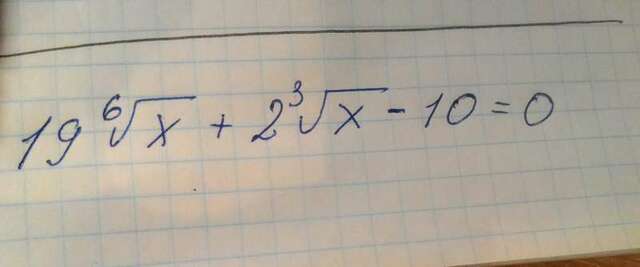 19 ⁶√x + 2 ³√x - 10 = 0